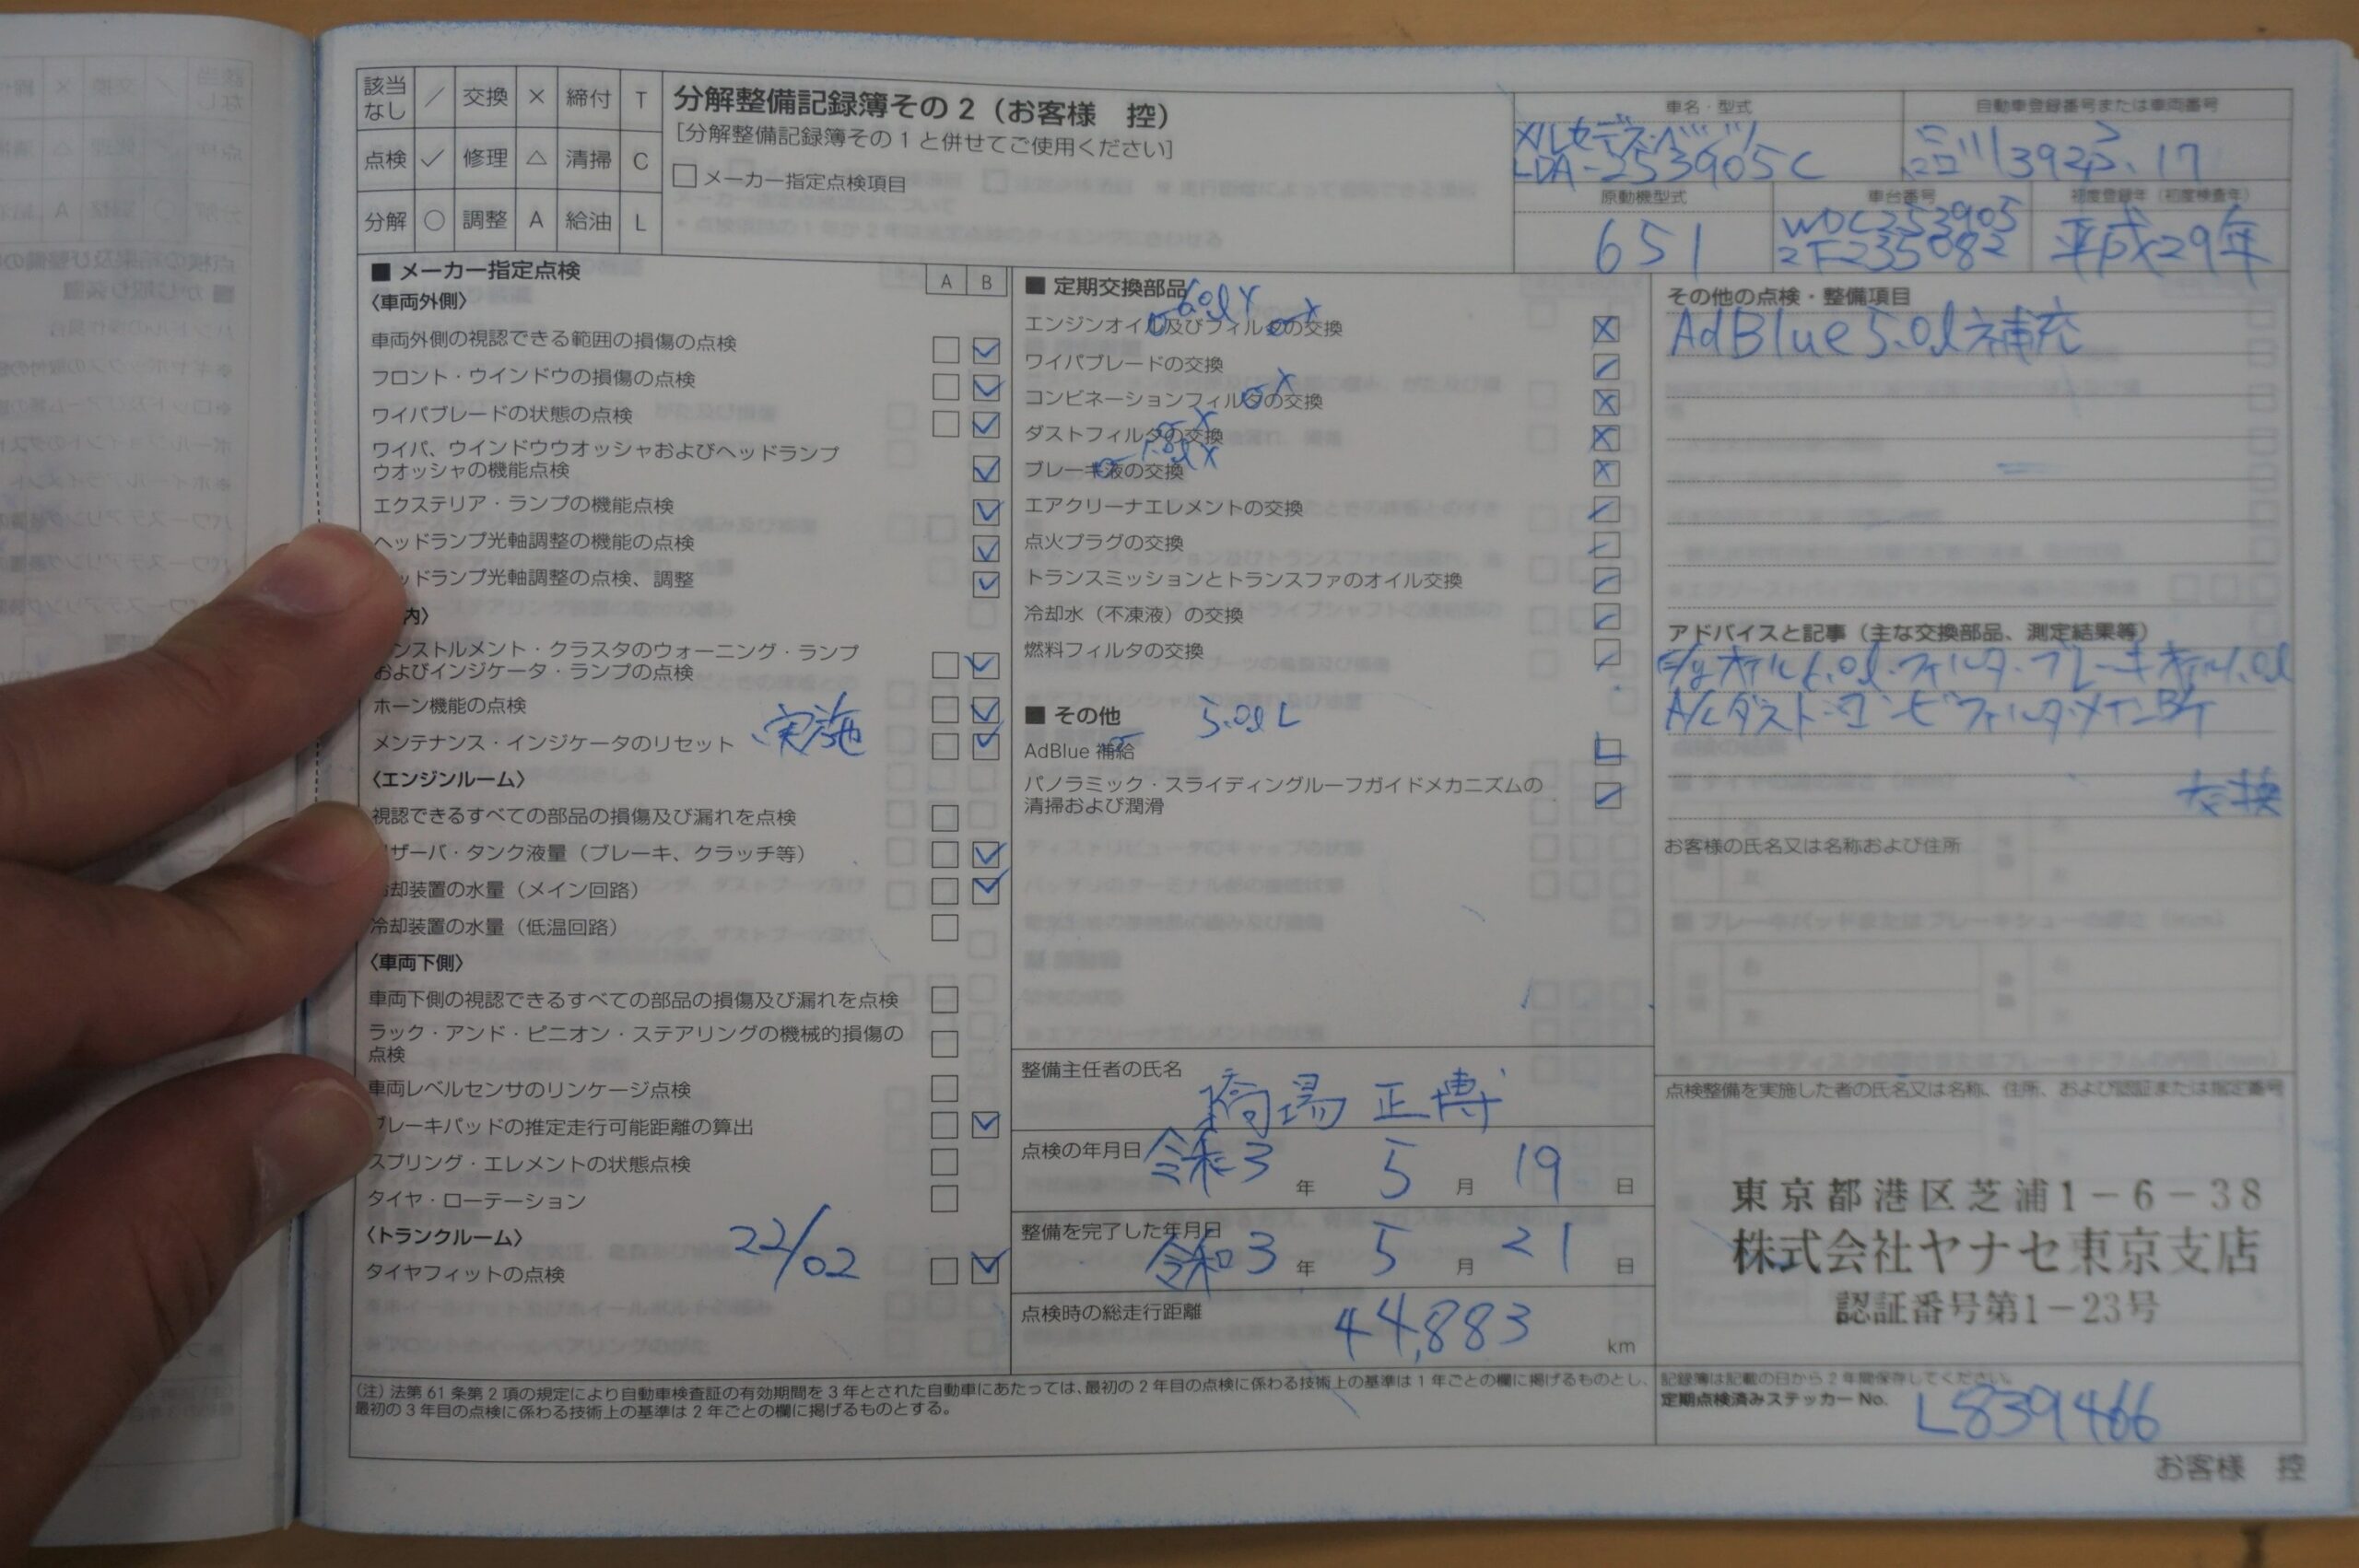 該当なし ／ 交換 × 締付 T
点検 ✓ 修理 △ 清掃 C
分解 ○ 調整 A 給油 L
分解整備記録簿その2（お客様 控）
［分解整備記録簿その1と併せてご使用ください］
□メーカー指定点検項目
車名・型式
メルセデスベンツ
LDA-253905C
自動車登録番号または車両番号
原動機型式
651
車台番号
WDC253905
2F235082
初度登録年（初度検査年）
平成29年
■ メーカー指定点検 A B
〈車両外側〉
車両外側の視認できる範囲の損傷の点検
フロント・ウインドウの損傷の点検
ワイパブレードの状態の点検
ワイパ、ウインドウウオッシャおよびヘッドランプ
ウオッシャの機能点検
エクステリア・ランプの機能点検
ヘッドランプ光軸調整の機能の点検
ッドランプ光軸調整の点検、調整
内〉
ンストルメント・クラスタのウォーニング・ランプ
およびインジケータ・ランプの点検
ホーン機能の点検
メンテナンス・インジケータのリセット 実施
〈エンジンルーム〉
視認できるすべての部品の損傷及び漏れを点検
ザーバ・タンク液量（ブレーキ、クラッチ等）
冷却装置の水量（メイン回路）
冷却装置の水量（低温回路）
〈車両下側〉
車両下側の視認できるすべての部品の損傷及び漏れを点検
ラック・アンド・ピニオン・ステアリングの機械的損傷の
点検
車両レベルセンサのリンケージ点検
ブレーキパッドの推定走行可能距離の算出
スプリング・エレメントの状態点検
タイヤ・ローテーション
〈トランクルーム〉
タイヤフィットの点検 22/02
■ 定期交換部品
エンジンオイル及びフィルタの交換
ワイパブレードの交換
コンビネーションフィルタの交換
ダストフィルタの交換
ブレーキ液の交換
エアクリーナエレメントの交換
点火プラグの交換
トランスミッションとトランスファのオイル交換
冷却水（不凍液）の交換
燃料フィルタの交換
■ その他 5.0ℓ L
AdBlue 補給
パノラミック・スライディングルーフガイドメカニズムの
清掃および潤滑
整備主任者の氏名
橋場 正博
点検の年月日 令和3 年 5 月 19 日
整備を完了した年月日 令和3 年 5 月 21 日
点検時の総走行距離 44,883 km
その他の点検・整備項目
AdBlue 5.0ℓ補充
アドバイスと記事（主な交換部品、測定結果等）
フィルタ・ブレーキオイル1.0ℓ
A/Cダスト・コンビフィルタ・メインBT
交換
お客様の氏名又は名称および住所
点検整備を実施した者の氏名又は名称、住所、および認証または指定番号
東京都港区芝浦1-6-38
株式会社ヤナセ東京支店
認証番号第1-23号
（注）法第61条第2項の規定により自動車検査証の有効期間を3年とされた自動車にあたっては、最初の2年目の点検に係わる技術上の基準は1年ごとの欄に掲げるものとし、
最初の3年目の点検に係わる技術上の基準は2年ごとの欄に掲げるものとする。
記録簿は記載の日から2年間保存してください。
定期点検済みステッカー No. L839466
お客様 控